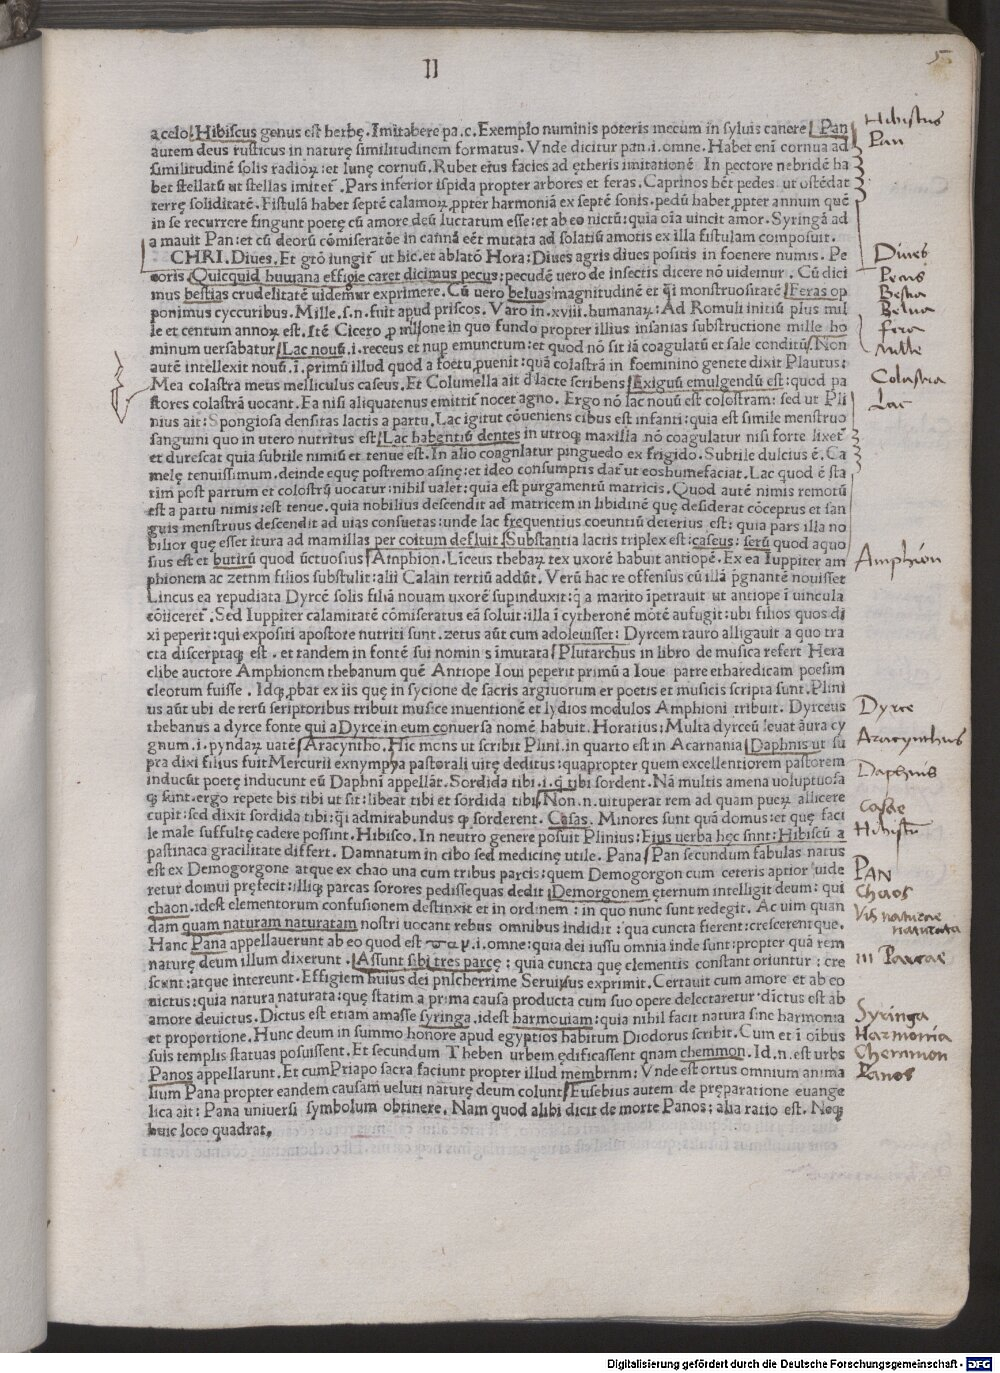 II
5
a celo. Hibiscus genus est herbę. Imitabere pa.c. Exemplo numinis poteris mecum in syluis canere Pan
autem deus rusticus in naturę similitudinem formatus. Vnde dicitur pan.i.omne. Habet enī cornua ad
similitudinē solis radioꝝ: et lunę cornuū. Rubet eius facies ad ętheris imitationē In pectore nebridē ha
bet stellatū ut stellas imitet᷑. Pars inferior ispida propter arbores et feras. Caprinos hēt pedes ut ostēdat
terrę soliditatē. Fistulā habet septē calamoꝝ ꝓpter harmoniā ex septē sonis. pedū habet ꝓpter annum quē
in se recurrere fingunt poetę cū amore deū luctatum esse: et ab eo uictū: quia oīa uincit amor. Syringā ad
a mauit Pan: et cū deorū cōmiseratōe in cannā eēt mutata ad solatiū amoris ex illa fistulam composuit.
CHRI. Diues. Et gtō iungit᷑ ut hic. et ablatō Hora: Diues agris diues positis in foenere numis. Pe
coris. Quicquid humana effigie caret dicimus pecus: pecudē uero de insectis dicere nō uidemur. Cū dici
mus bestias crudelitatē uidemur exprimere. Cū uero beluas magnitudinē et q̄i monstruositatē Feras op
ponimus cyccuribus. Mille.s.n.fuit apud priscos. Varo in.xviii.humanaꝝ: Ad Romuli initiū plus mil
le et centum annoꝝ est. Itē Cicero ꝓ milone in quo fundo propter illius insanias substructione mille ho
minum uersabatur Lac nouū.i.recens et nuꝑ emunctum: et quod nō sit iā coagulatū et sale conditū. Non
autē intellexit nouū.ī. primū illud quod a foetu ꝓuenit: quā colastrā in foeminino genere dixit Plautus:
Mea colastra meus melliculus caseus. Et Columella ait d̄ lacte scribens Exiguū emulgendū est: quod pa
stores colastrā uocant. Ea nisi aliquatenus emittit᷑ nocet agno. Ergo nō lac nouū est colostram: sed ut Pli
nius ait: Spongiosa densitas lactis a partu. Lac igitut cōueniens cibus est infanti: quia est simile menstruo
sanguini quo in utero nutritus est Lac habentiū dentes in utroqꝫ maxilla nō coagulatur nisi forte lixet᷑
et durescat quia subtile nimiū et tenue est. In alio coagnlatur pinguedo ex frigido. Subtile dulcius ē. Ca
melę tenuissimum. deinde equę postremo asinę: et ideo consumptis dat᷑ ut eos humefaciat. Lac quod ē sta
tim post partum et colostrū uocatur: nihil ualet: quia est purgamentū matricis. Quod autē nimis remotū
est a partu nimis: est tenue. quia nobilius descendit ad matricem in libidinē quę desiderat cōceptus et san
guis menstruus descendit ad uias consuetas: unde lac frequentius coeuntiū deterius est: quia pars illa no
bilior quę esset itura ad mamillas per coitum defluit Substantia lactis triplex est: caseus: serū quod aquo
sius est et butirū quod ūctuosius Amphion. Liceus thebaꝝ rex uxorē habuit antiopē. Ex ea Iuppiter am
phionem ac zetnm filios substulit: alii Calain tertiū addūt. Verū hac re offensus cū illā p̄gnantē nouisset
Lincus ea repudiata Dyrcē solis filiā nouam uxorē supinduxit: q̄ a marito īpetrauit ut antiope ī uincula
cōiiceret᷑. Sed Iuppiter calamitatē cōmiseratus eā soluit: illa ī cytheronē mōtē aufugit: ubi filios quos di
xi peperit: qui expositi apostore nutriti sunt. zetus aūt cum adoleuisset: Dyrcem tauro alligauit a quo tra
cta discerptaqꝫ est. et tandem in fontē sui nomin s īmutata Plutarchus in libro de musica refert Hera
clibe auctore Amphionem thebanum quē Antiope Ioui peperit primū a Ioue patre etharedicam poesim
cleotum fuisse. Idqꝫ ꝓbat ex iis quę in sycione de sacris argiuorum er poetis et musicis scripta sunt. Plini
us aūt ubi de rerū scriptoribus tribuit musice inuentionē et lydios modulos Amphioni tribuit. Dyrceus
thebanus a dyrce fonte qui a Dyrce in eum conuersa nomē habuit. Horatius: Multa dyrceū leuat aura cy
gnum.i.pyndaꝝ uatē Aracyntho. Hic mons ut scribit Plini. in quarto est in Acarnania Daphnis ut su
pra dixi filius fuit Mercurii exnympha pastorali uitę deditus: quapropter quem excellentiorem pastorem
inducūt poetę inducunt eū Daphnī appellāt. Sordida tibi.i.q̄ tibi sordent. Nā multis amena uoluptuosa
qꝫ sunt. ergo repete bis tibi ut sit: libeat tibi et sordida tibi. Non.n.uituperat rem ad quam pueꝝ allicere
cupit: sed dixit sordida tibi: q̄i admirabundus ꝙ sorderent. Casas. Minores sunt quā domus: et quę faci
le male suffultę cadere possint. Hibisco. In neutro genere posuit Plinius: Eius uerba hęc snnt: Hibiscū a
pastinaca gracilitate differt. Damnatum in cibo sed medicinę utile. Pana Pan secundum fabulas natus
est ex Demogorgone atque ex chao una cum tribus parcis: quem Demogorgon cum ceteris aptior uide
retur domui pręfecit: illiqꝫ parcas sorores pedissequas dedit Demorgonem ęternum intelligit deum: qui
chaon. idest elementorum confusionem destinxit et in ordinem: in quo nunc sunt redegit. Ac uim quan
dam quam naturam naturatam nostri uocant rebus omnibus indidit: qua cuncta fierent: crescerentque.
Hanc Pana appellauerunt ab eo quod est παμ.i.omne: quia dei iussu omnia inde sunt: propter quā rem
naturę deum illum dixerunt. Assunt sibi tres parcę: quia cuncta quę clementis constant oriuntur: cre
scunt: atque intereunt. Effigiem huius dei pnlscherrime Seruiusus exprimit. Certauit cum amore et ab eo
uictus: quia natura naturata: quę statim a prima causa producta cum suo opere delectaretur dictus est ab
amore deuictus. Dictus est etiam amasse syringa. idest harmouiam: quia nihil facit natura sine harmonia
et proportione. Hunc deum in summo honore apud egyptios habitum Diodorus scribit. Cum et ī oībus
suis templis statuas posuissent. Et secundum Theben urbem ędificassent qnam chemmon. Id.n.est urbs
Panos appellarunt. Et cum Priapo sacra faciunt propter illud membrnm: Vnde est ortus omnium anima
lium Pana propter eandem causam ueluti naturę deum colunt Eusebius autem de pręparatione euange
lica ait: Pana uniuersi symbolum obtinere. Nam quod alibi dicit de morte Panos: alia ratio est. Neqꝫ
huic loco quadrat.
Hibistus
Pan
Diues
Pecus
Bestia
Belua
Fera
Mille
Colastra
Lac
Amphion
Dyrce
Aracynthus
Daphnis
Casae
Hibiscū
PAN
Chaos
Vis naturae
naturata
III Parcae
Syringa
Harmonia
Chemmon
Panos
Digitalisierung gefördert durch die Deutsche Forschungsgemeinschaft - DFG